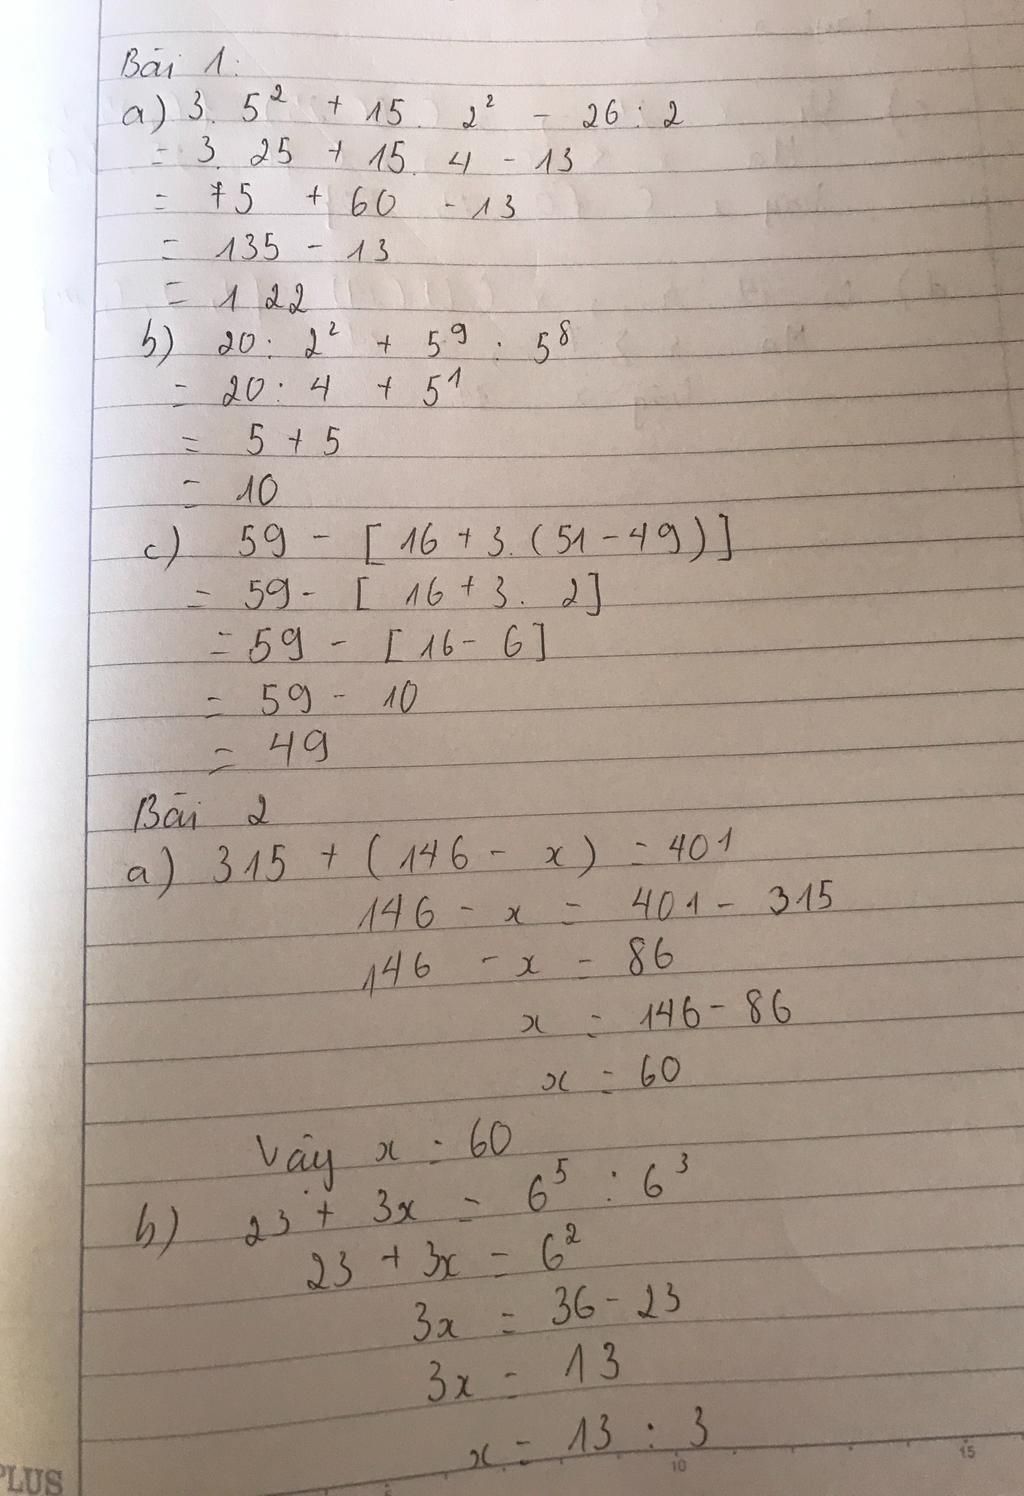 Bài 1:
a) 3. 5² + 15. 2² - 26 : 2
= 3. 25 + 15. 4 - 13
= 75 + 60 - 13
= 135 - 13
= 122
b) 20 : 2² + 5⁹ : 5⁸
= 20 : 4 + 5¹
= 5 + 5
= 10
c) 59 - [ 16 + 3. ( 51 - 49 ) ]
= 59 - [ 16 + 3. 2 ]
= 59 - [ 16 - 6 ]
= 59 - 10
= 49
Bài 2
a) 315 + ( 146 - x ) = 401
146 - x = 401 - 315
146 - x = 86
x = 146 - 86
x = 60
Vậy x = 60
b) 23 + 3x = 6⁵ : 6³
23 + 3x = 6²
3x = 36 - 23
3x = 13
x = 13 : 3
PLUS
5 10 15